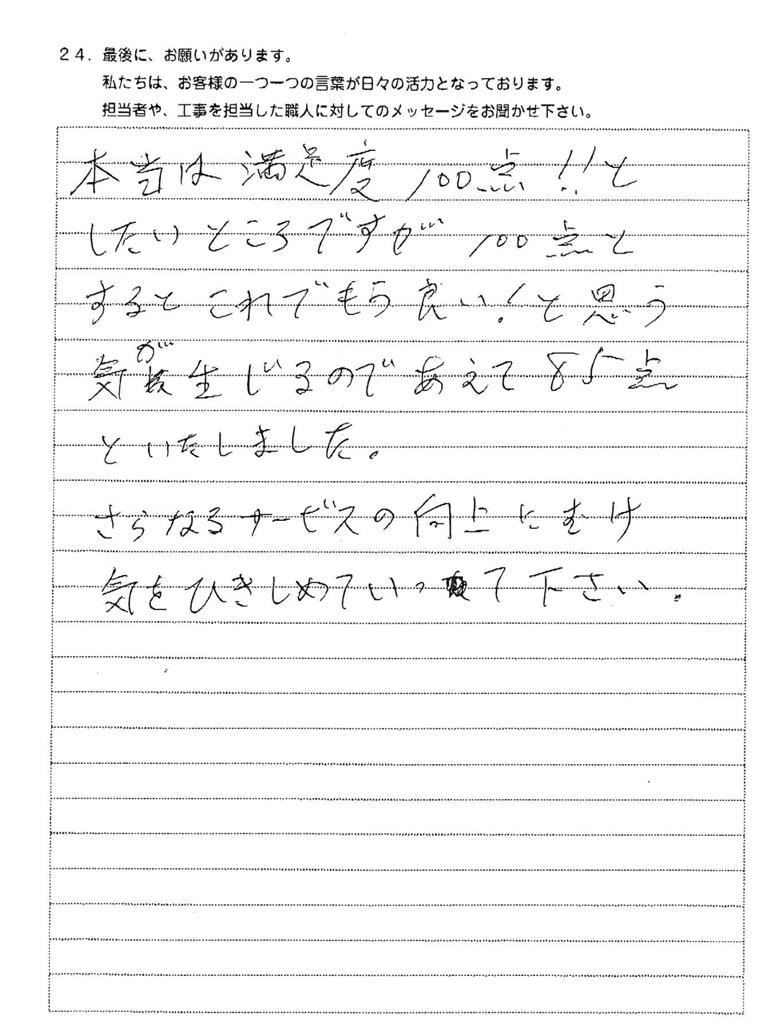 24．最後に、お願いがあります。
私たちは、お客様の一つ一つの言葉が日々の活力となっております。
担当者や、工事を担当した職人に対してのメッセージをお聞かせ下さい。
本当は満足度100点!!と
したいところですが100点と
するとこれでもう良い!と思う
気が生じるのであえて85点
といたしました。
さらなるサービスの向上にむけ
気をひきしめていって下さい。